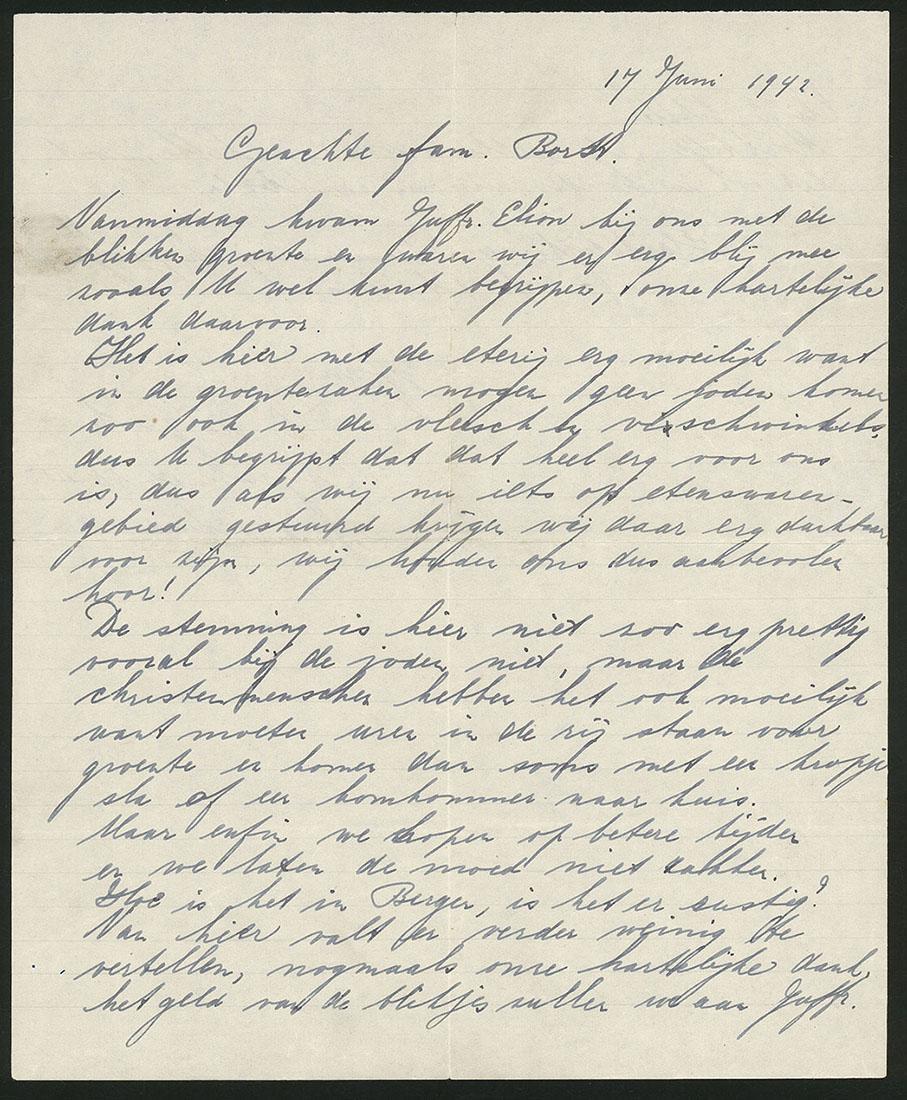 17 Juni 1942.
Geachte fam. Borst.
Vanmiddag kwam Juffr. Elion bij ons met de
blikken groente en waren wij er erg blij mee
zooals U wel kunt begrijpen, onze hartelijke
dank daarvoor.
Het is hier met de eterij erg moeilijk want
in de groentezaken mogen geen joden komen
zoo ook in de vleesch en vischwinkels,
dus U begrijpt dat dat heel erg voor ons
is, dus als wij nu iets op etenswaren-
gebied gestuurd krijgen wij daar erg dankbaar
voor zijn, wij houden ons dus aanbevolen
hoor!
De stemming is hier niet zoo erg prettig
vooral bij de joden niet, maar de
christenmenschen hebben het ook moeilijk
want moeten uren in de rij staan voor
groente en komen dan soms met een kropje
sla of een komkommer naar huis.
Maar enfin we hopen op betere tijden
en we laten de moed niet zakken.
Hoe is het in Bergen, is het er rustig?
Van hier valt er verder weinig te
vertellen, nogmaals onze hartelijke dank,
het geld van de blikjes zullen we aan Juffr.